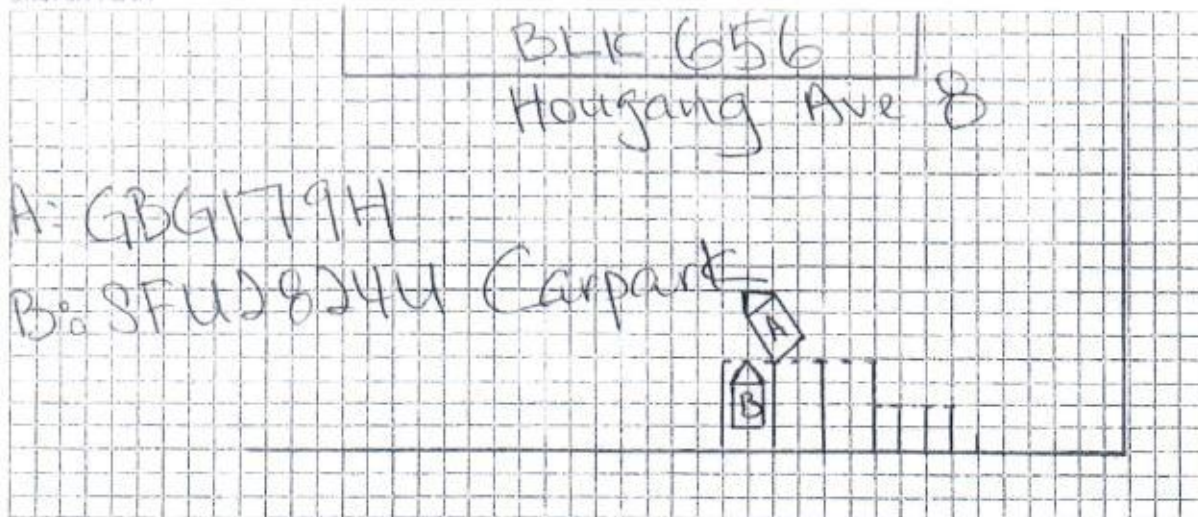 BLK 656
Hougang Ave 8
A: GBG1779H
B: SFU2824U Carpark
A
B